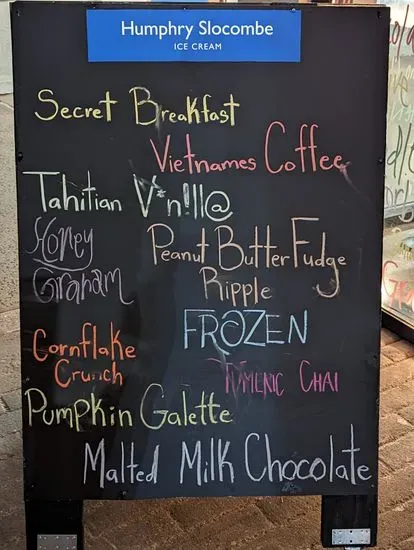 Humphry Slocombe
ICE CREAM
Secret Breakfast
Vietnames Coffee
Tahitian V*n!ll@
Honey
Graham
Peanut Butter Fudge
Ripple
FROZEN
Cornflake
Crunch
TUMERIC CHAI
Pumpkin Galette
Malted Milk Chocolate